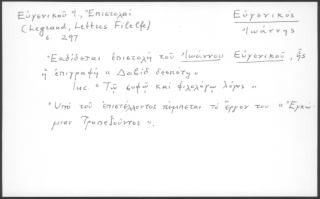 Εὐγενικοῦ Ἰ., Ἐπιστολαί
(Legrand, Lettres Filelfe)
σ. 297
Εὐγενικὸς
Ἰωάννης
Ἐκδίδεται ἐπιστολὴ τοῦ Ἰωάννου Εὐγενικοῦ, ἧς
ἡ ἐπιγραφὴ « Δαβὶδ δεσπότῃ »
Inc. « Τῷ σοφῷ καὶ φιλολόγῳ λόγος »
Ὑπὸ τοῦ ἐπιστέλλοντος πέμπεται τὸ ἔργον του « Ἐγκώ-
μιον Τραπεζοῦντος ».